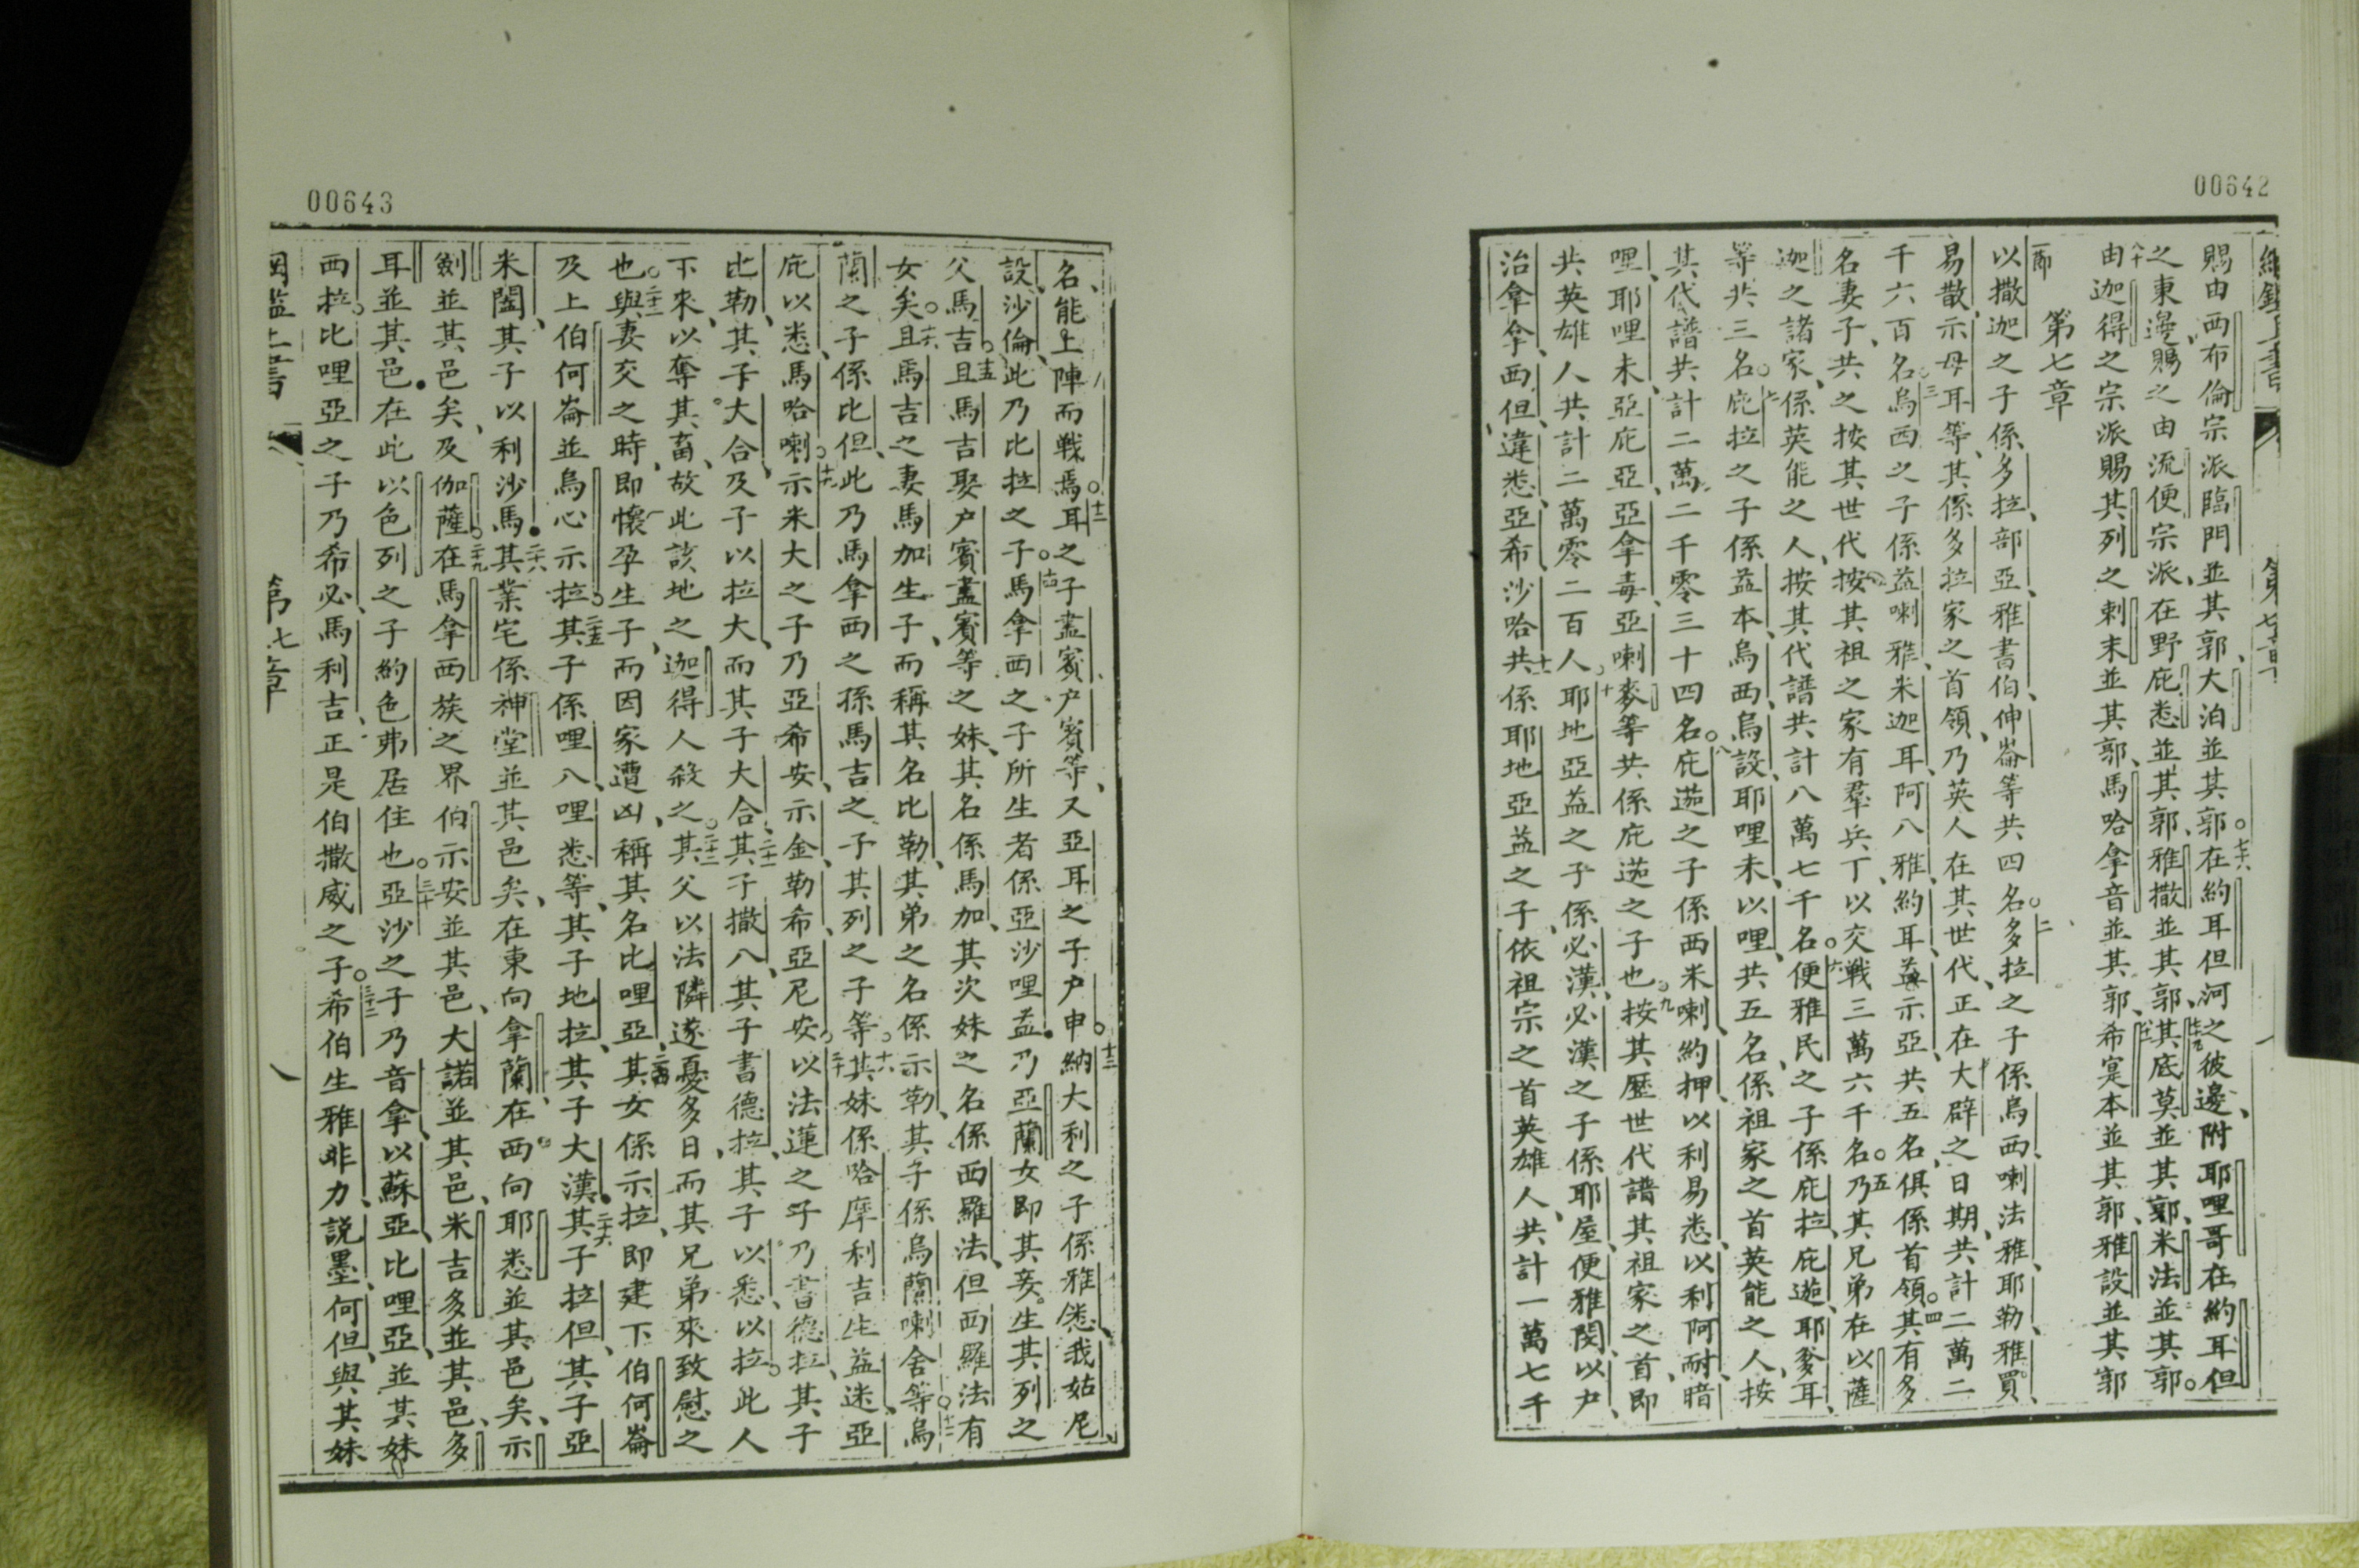 00642
賜由西布倫宗派臨門並其郭大泊並其郭○七十八在約耳但河之彼邊附耶哩哥在約耳但
之東邊賜之由流便宗派在野庇悉並其郭雅撒並其郭七十九其底莫並其郭米法並其郭○
八十由迦得之宗派賜其列之剌末並其郭馬哈拿音並其郭八十一希寔本並其郭雅設並其郭
第七章
一節以撒迦之子係多拉部亞雅書伯伸崙等共四名○二多拉之子係烏西喇法雅耶勒雅買
易散示母耳等其係多拉家之首領乃英人在其世代正在大辟之日期共計二萬二
千六百名○三烏西之子係益喇雅米迦耳阿八雅約耳益示亞共五名俱係首領○四其有多
名妻子共之按其世代按其祖之家有羣兵丁以交戰三萬六千名○五乃其兄弟在以薩
迦之諸家係英能之人按其代譜共計八萬七千名○六便雅民之子係庇拉庇遾耶爹耳
等共三名○七庇拉之子係益本烏西烏設耶哩未以哩共五名係祖家之首英能之人按
其代譜共計二萬二千零三十四名○八庇遾之子係西米喇約押以利易悉以利阿耐暗
哩耶哩未亞庇亞亞拿毒亞喇麥等共係庇遾之子也○九按其歷世代譜其祖家之首即
共英雄人共計二萬零二百人○十耶地亞益之子係必漢必漢之子係耶屋便雅閔以戸
治拿拿西但違悉亞希沙哈十一共係耶地亞益之子依祖宗之首英雄人共計一萬七千
第七章
00643
名能上陣而戰焉○十二耳之子盡賓户賓等又亞耳之子户申○十三納大利之子係雅悉我姑尼
設沙倫此乃比拉之子○十四馬拿西之子所生者係亞沙哩益乃亞蘭女即其妾生其列之
父馬吉○十五且馬吉娶户賓盡賓等之妹其名係馬加其次妹之名係西羅法但西羅法有
女矣○十六且馬吉之妻馬加生子而稱其名比勒其弟之名係示勒其子係烏蘭喇舍等○十七烏
蘭之子係比但此乃馬拿西之孫馬吉之子其列之子等○十八其妹係哈摩利吉生益迷亞
庇以悉馬哈喇○十九示米大之子乃亞希安示金勒希亞尼安○二十以法蓮之子乃書德拉其子
比勒其子大合及子以拉大而其子大合二十一其子撒八其子書德拉其子以悉以拉此人
下來以奪其畜故此該地之迦得人殺之○二十二其父以法隣遂憂多日而其兄弟來致慰之
也○二十三與妻交之時即懷孕生子而因家遭凶稱其名比哩亞二十四其女係示拉即建下伯何崙
及上伯何崙並烏心示拉○二十五其子係哩八哩悉等其子地拉其子大漢二十六其子拉但其子亞
米闔其子以利沙馬二十八其業宅係神堂並其邑矣在東向拿蘭在西向耶悉並其邑矣示
劍並其邑矣及伽薩○二十九在馬拿西族之界伯示安並其邑大諾並其邑米吉多並其邑多
耳並其邑在此以色列之子約色弗居住也○三十亞沙之子乃音拿以蘇亞比哩亞並其妹
西拉比哩亞之子乃希必馬利吉正是伯撒威之子○三十二希伯生雅非力説墨何但與其妹
第七章